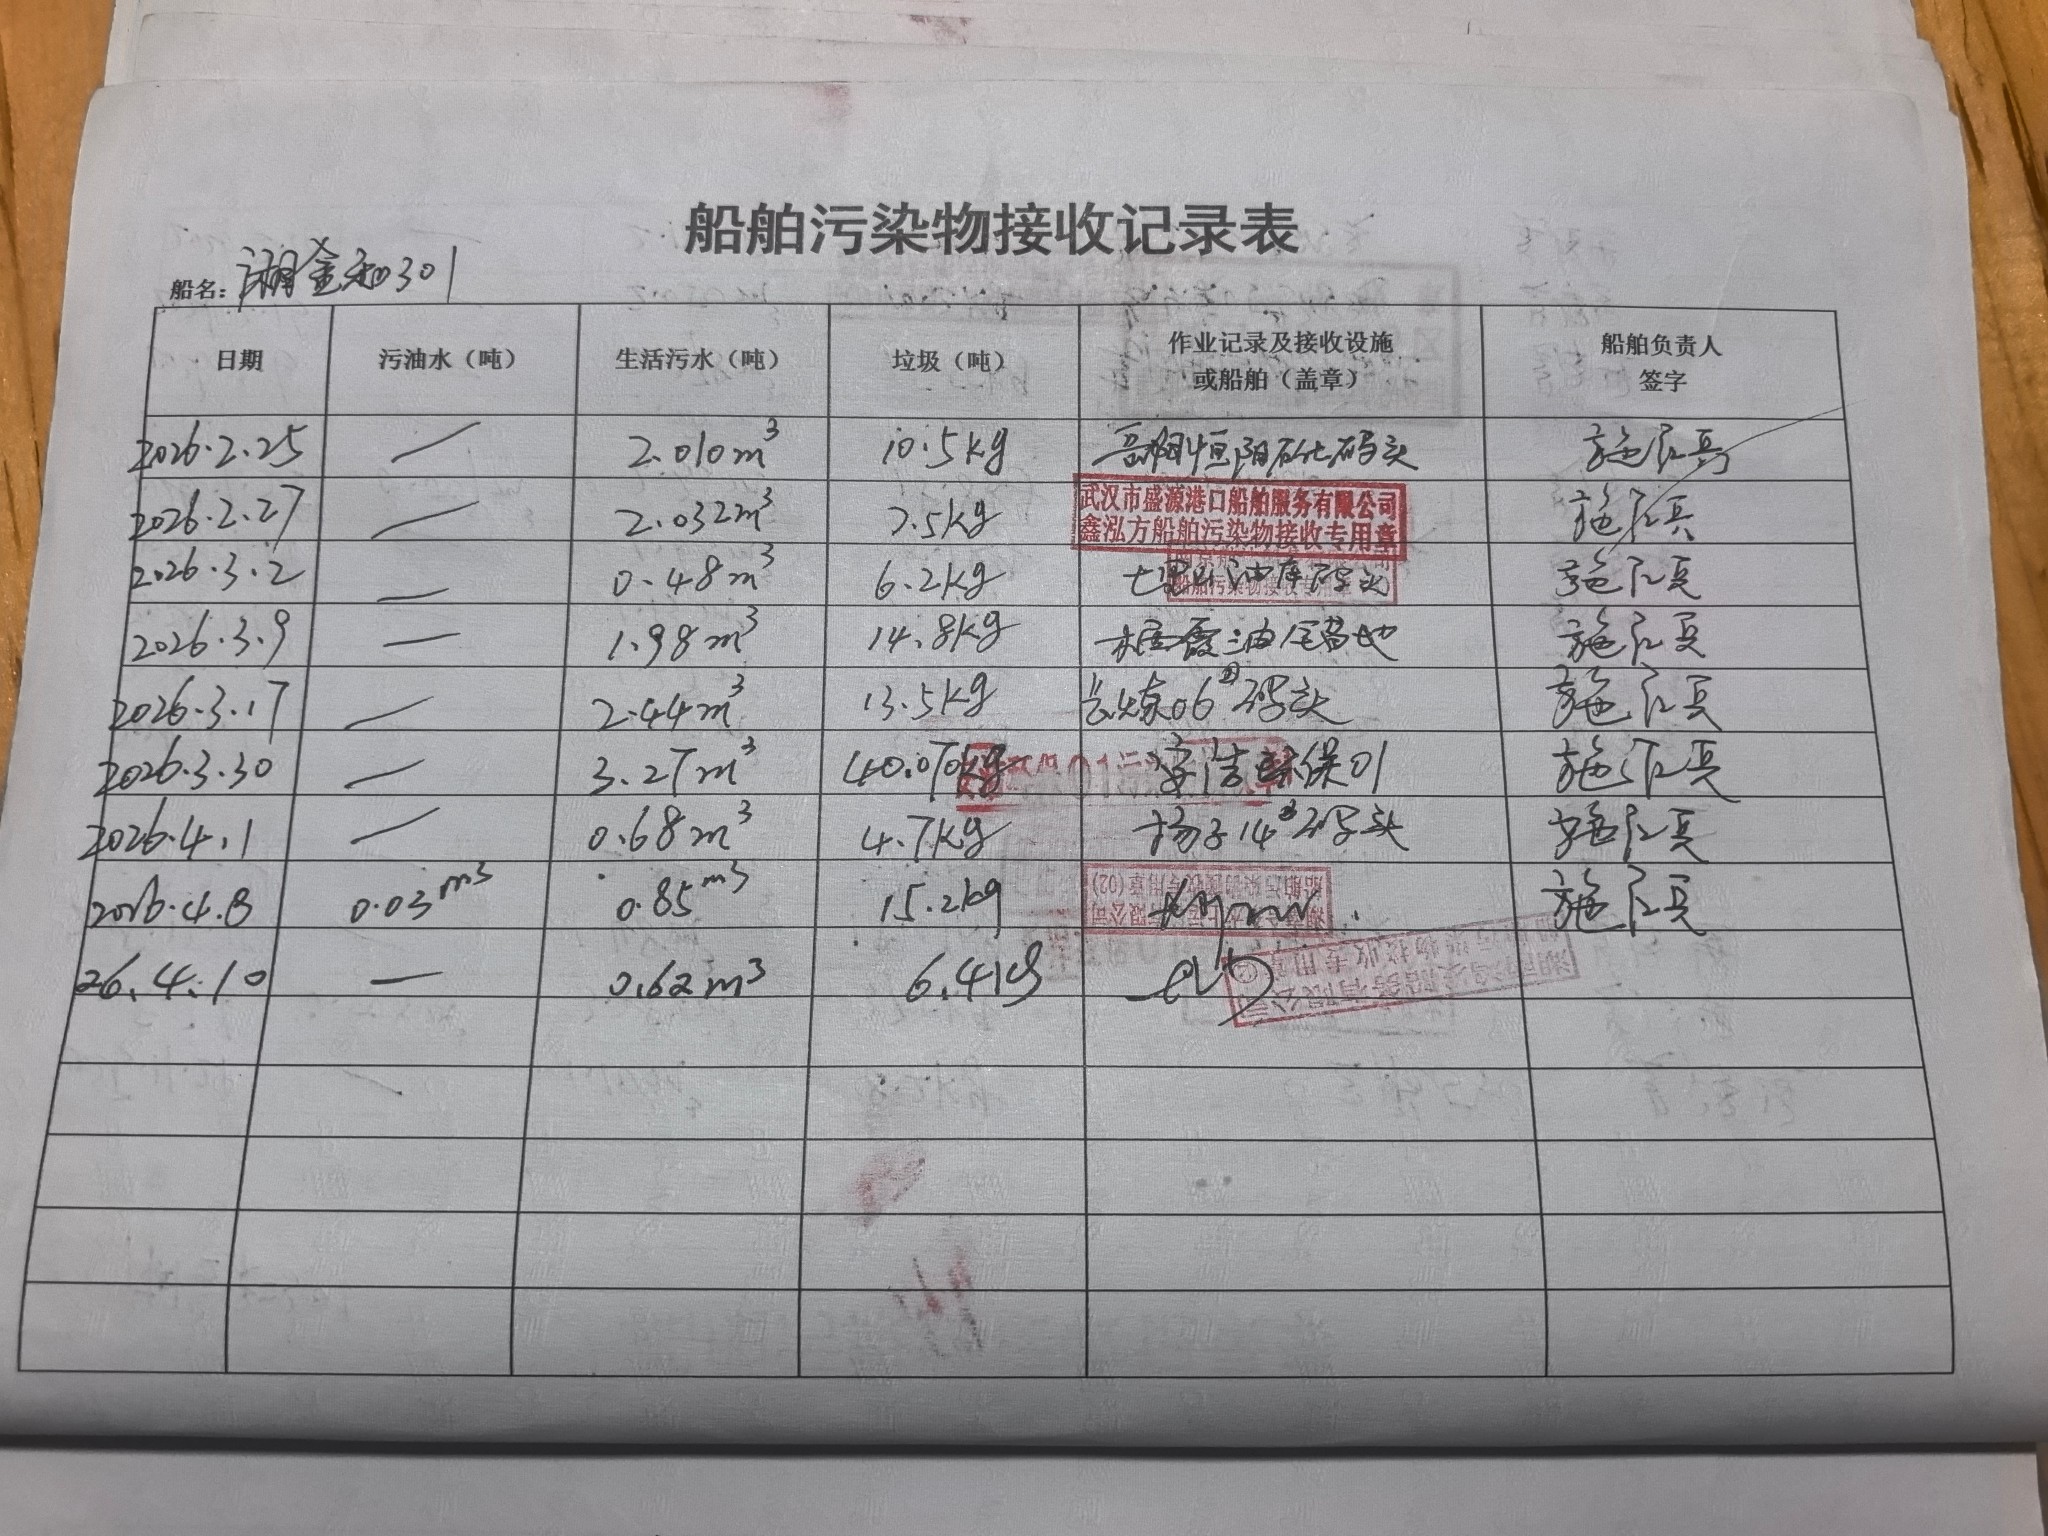 船舶污染物接收记录表
船名: 湖金和301
日期 污油水（吨） 生活污水（吨） 垃圾（吨） 作业记录及接收设施或船舶（盖章） 船舶负责人签字
2026.2.25 — 2.010m³ 10.5kg 岳阳恒阳石化码头 施仁兵
2026.2.27 — 2.032m³ 7.5kg 武汉市盛源港口船舶服务有限公司 鑫泓方船舶污染物接收专用章 施仁兵
2026.3.2 — 0.48m³ 6.2kg 油库码头 船舶污染物接收专用章 施仁兵
2026.3.9 — 1.98m³ 14.8kg 栖霞油 施仁兵
2026.3.17 — 2.44m³ 13.5kg 长炼06#码头 施仁兵
2026.3.30 — 3.27m³ 40.070kg 洁环保01 施仁兵
2026.4.1 — 0.68m³ 4.7kg 扬子14#码头 施仁兵
2026.4.8 0.03m³ 0.85m³ 15.2kg 船舶污染物接收专用章(02) 施仁兵
26.4.10 — 0.62m³ 6.4kg